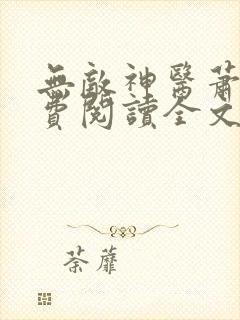 無敵神醫蕭
費閱讀全文
荼蘼